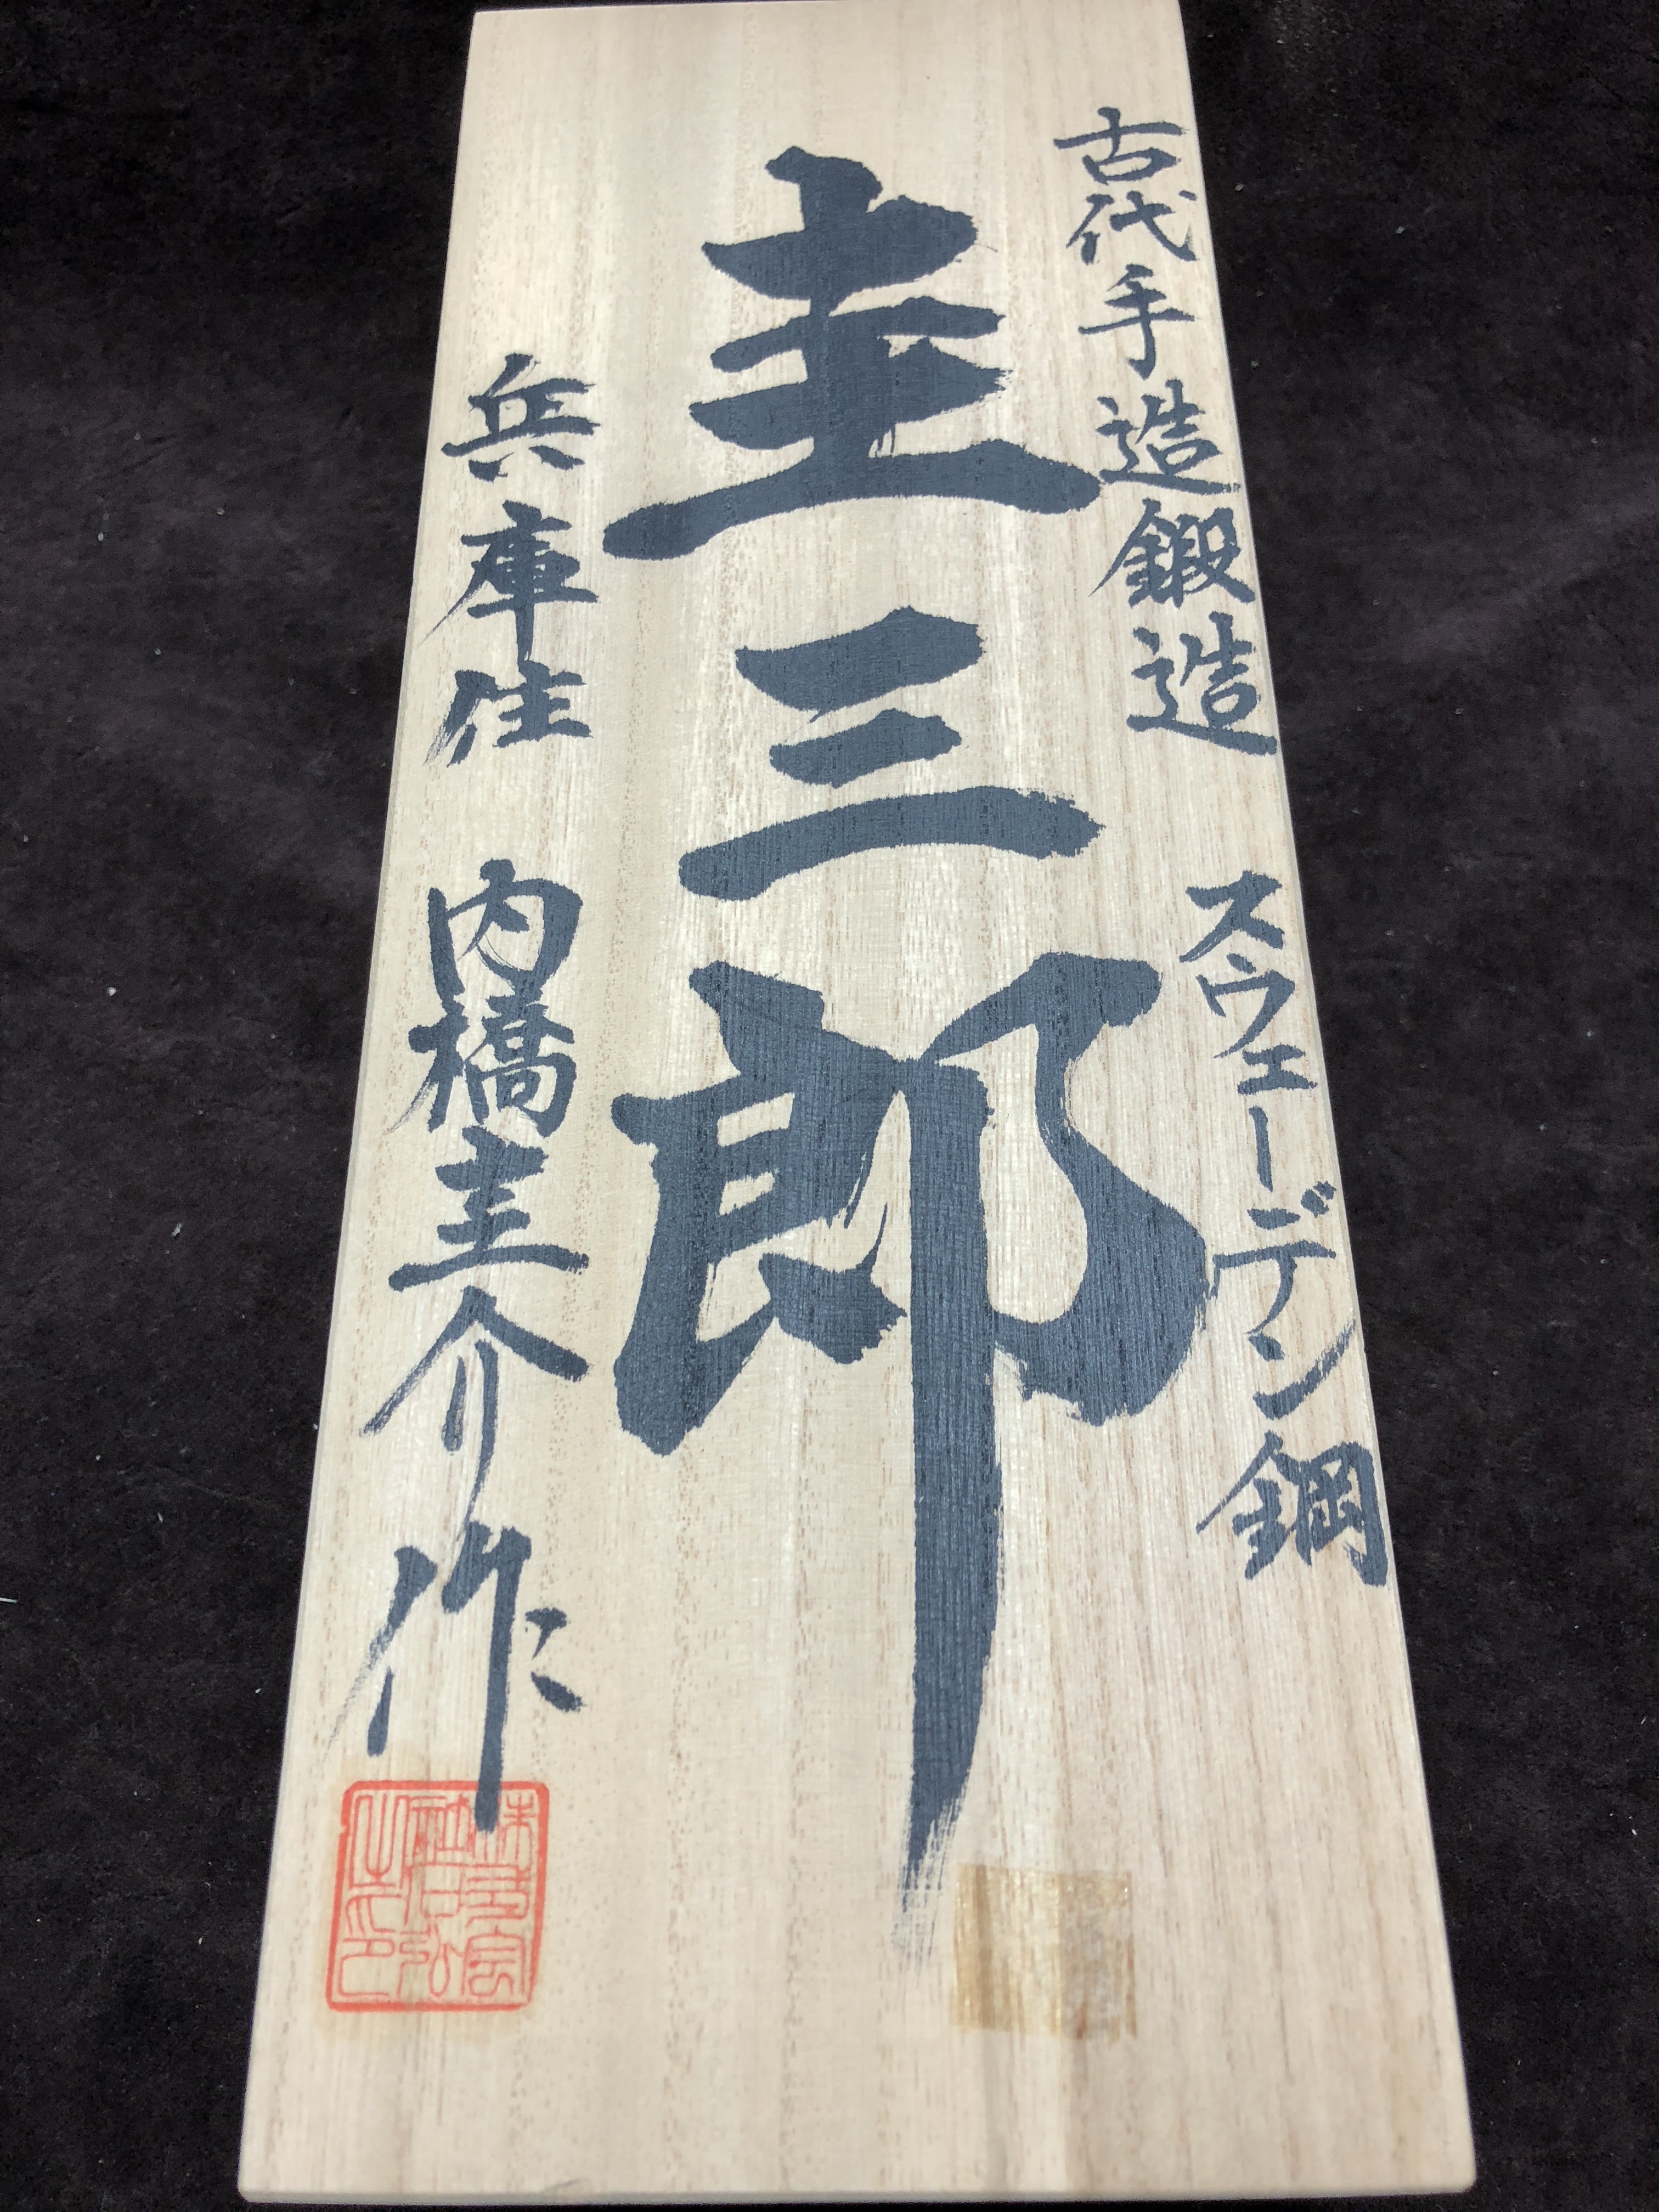 古代手造鍛造 スウェーデン鋼
圭三郎
兵庫住 内橋圭介作